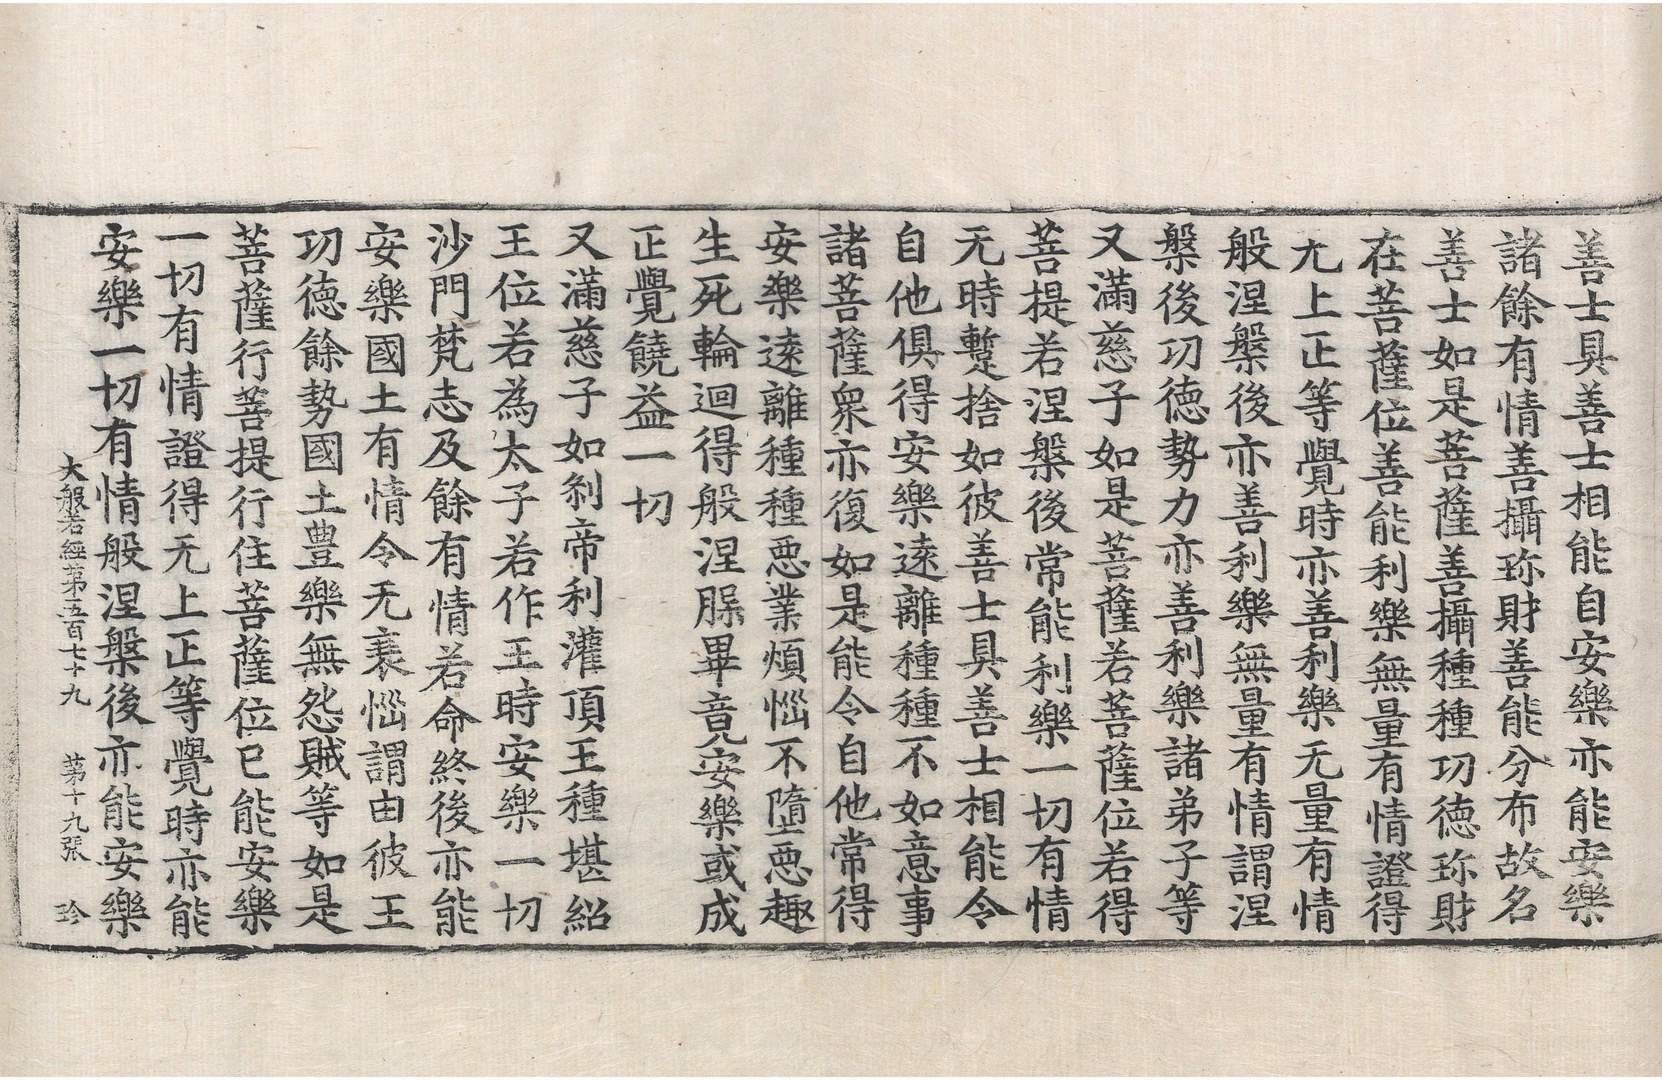 善士具善士相能自安樂亦能安樂
諸餘有情善攝珎財善能分布故名
善士如是菩薩善攝種種功德珎財
在菩薩位善能利樂無量有情證得
尢上正等覺時亦善利樂无量有情
般涅槃後亦善利樂無量有情謂涅
槃後功德勢力亦善利樂諸弟子等
又滿慈子如是菩薩若菩薩位若得
菩提若涅槃後常能利樂一切有情
无時蹔捨如彼善士具善士相能令
自他俱得安樂遠離種種不如意事
諸菩薩衆亦復如是能令自他常得
安樂遠離種種惡業煩惱不墮惡趣
生死輪迴得般涅脲畢竟安樂或成
正覺饒益一切
又滿慈子如刹帝利灌頂王種堪紹
王位若為太子若作王時安樂一切
沙門梵志及餘有情若命終後亦能
安樂國土有情令无衰惱謂由彼王
功德餘勢國土豊樂無怨賊等如是
菩薩行菩提行住菩薩位已能安樂
一切有情證得无上正等覺時亦能
安樂一切有情般涅槃後亦能安樂
大般若經第五百七十九 第十九張 珎